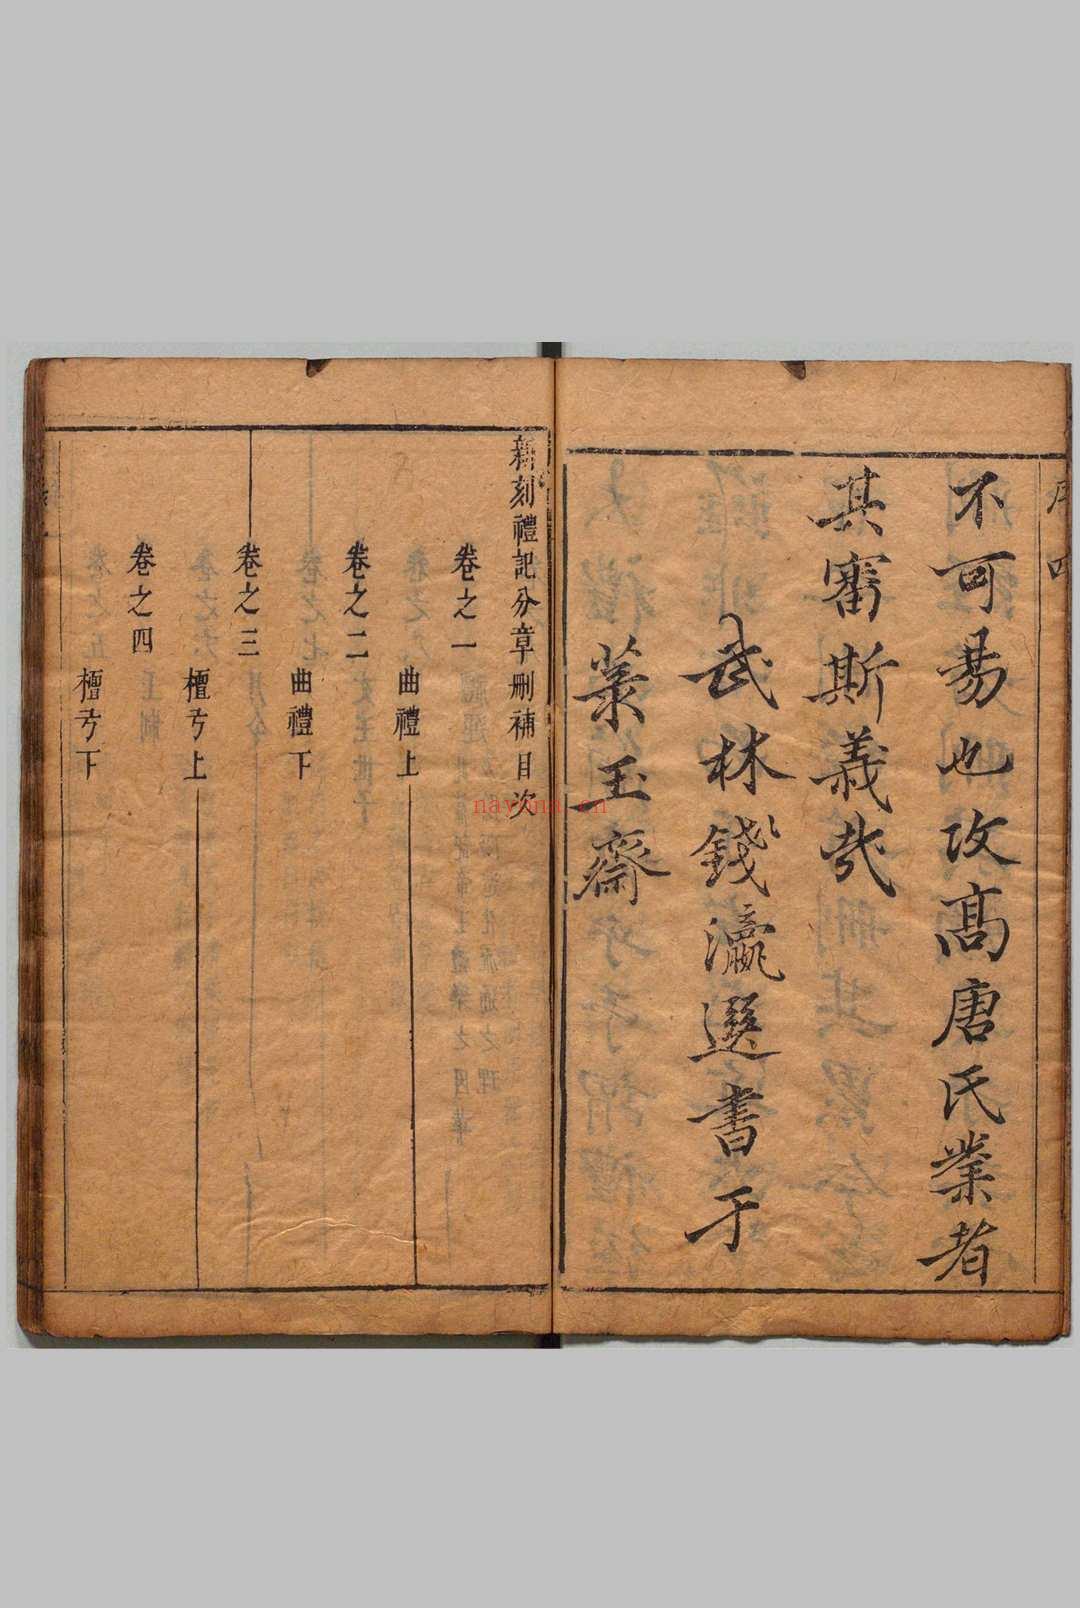 序四
不可易也攻高唐氏業者
其審斯義哉
武林錢瀛選書于
藂玉齋
新刻禮記分章刪補目次
卷之一
曲禮上
卷之二
曲禮下
卷之三
檀弓上
卷之四
檀弓下
nayona.cn